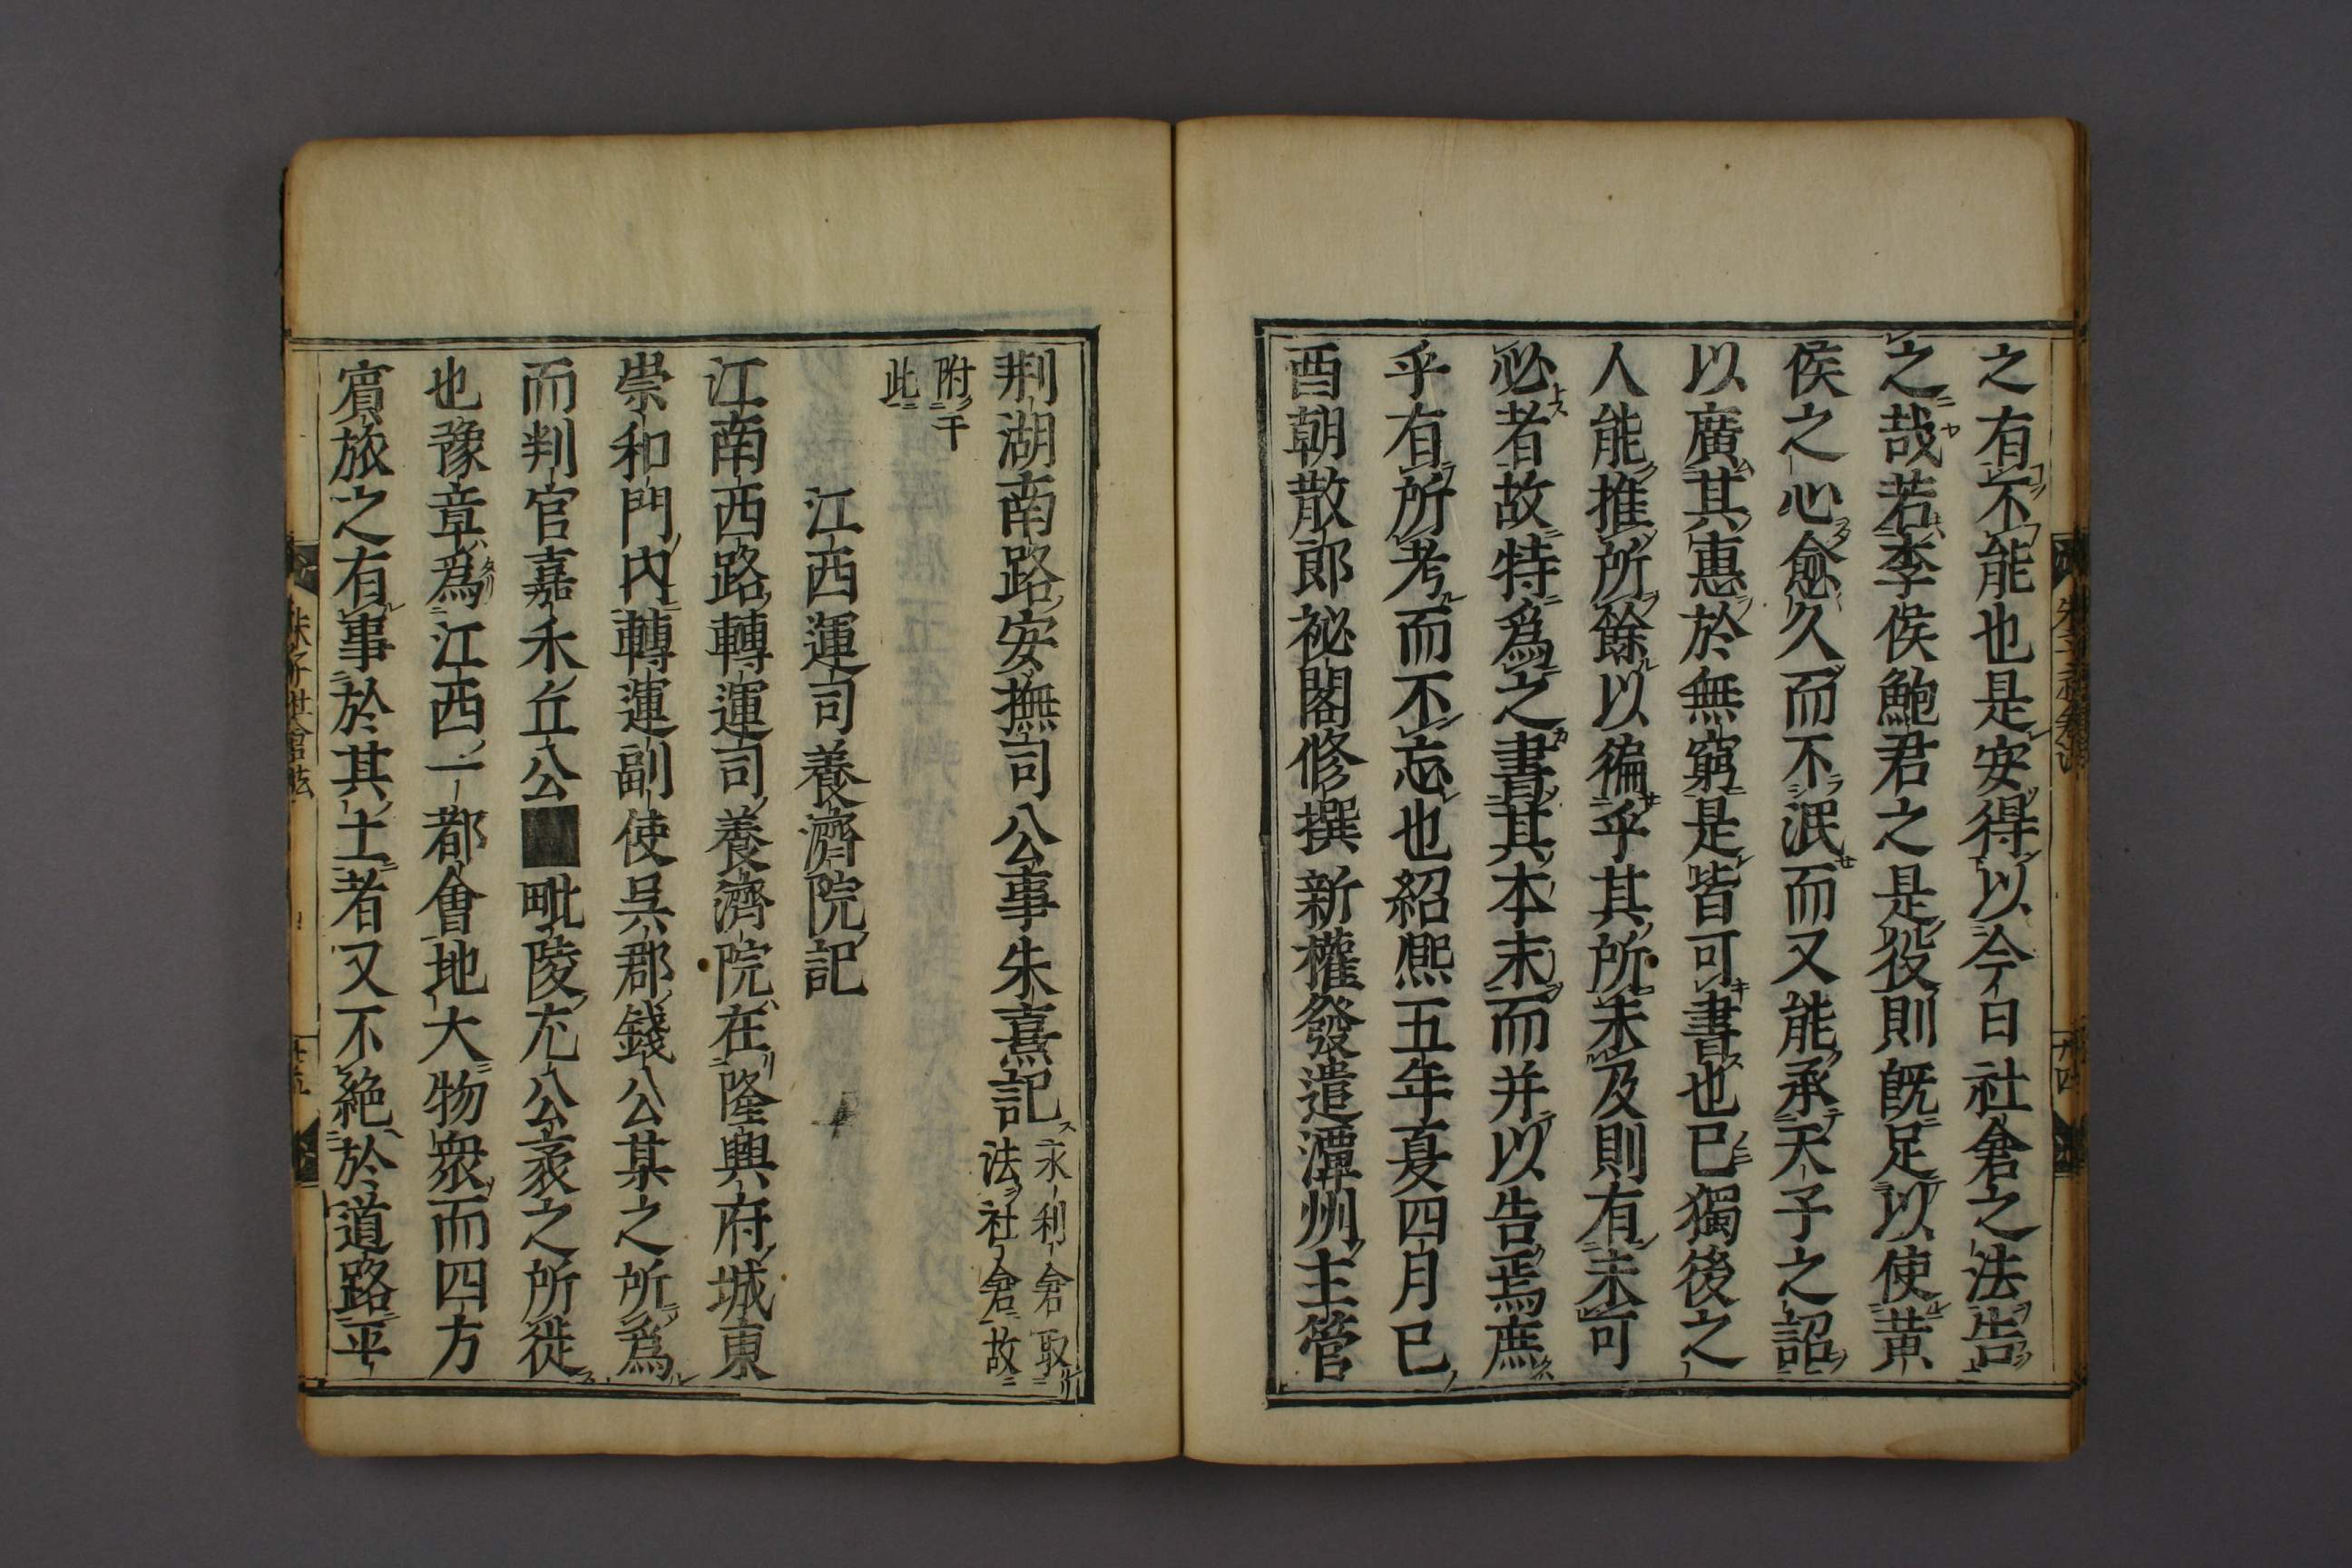 之有不能也是安得以今日社倉之法告
之哉若李侯鮑君之是役則既足以使黄
侯之心愈久而不泯而又能承天子之詔
以廣其惠於無窮是皆可書也已獨後之
人能推所餘以徧乎其所未及則有未可
必者故特爲之書其本末而并以告焉庶
乎有所考而不忘也紹熙五年夏四月巳
酉朝散郎祕閣修撰新權發遣潭州主管
荆湖南路安撫司公事朱熹記永利倉取
法社倉故
附于
此
江西運司養濟院記
江南西路轉運司養濟院在隆興府城東
崇和門内轉運副使吳郡錢公某之所爲
而判官嘉禾丘公■毗陵尢公袤之所徙
也豫章爲江西一都會地大物衆而四方
賓旅之有事於其土者又不絶於道路平
朱子社倉法